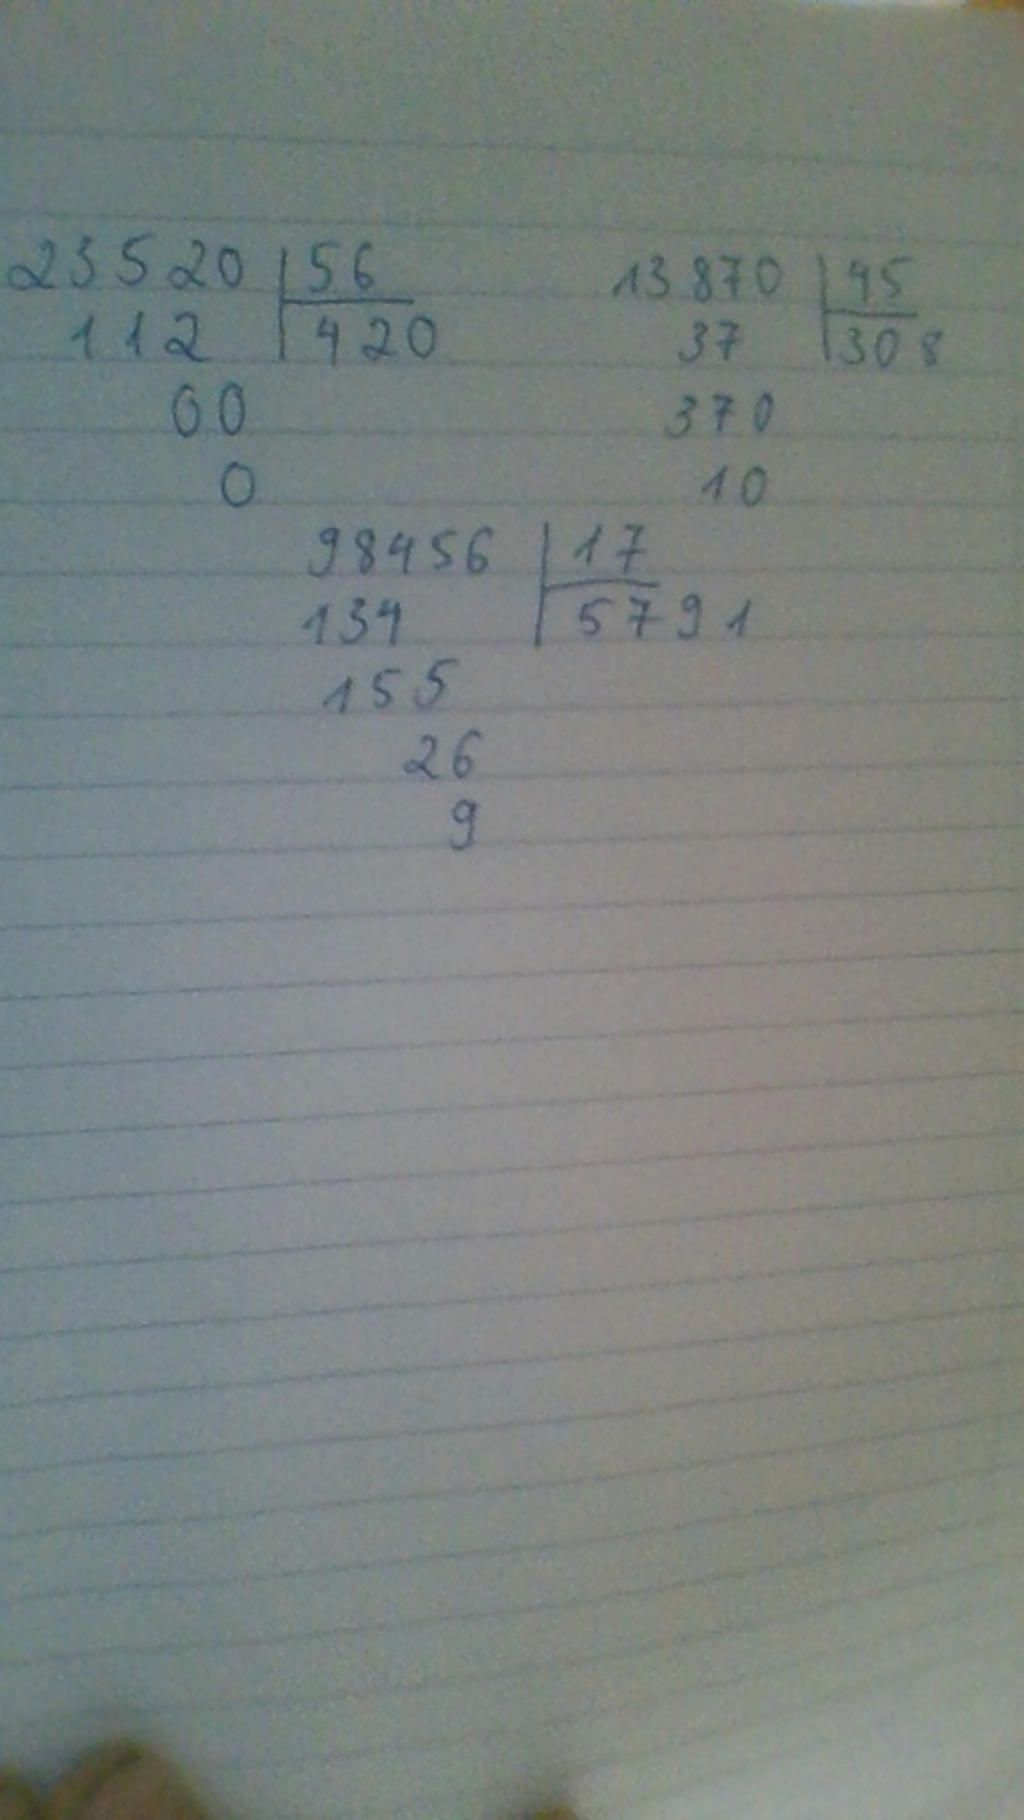 23520 56
112 420
00
0
13870 45
37 308
370
10
98456 17
134 5791
155
26
9